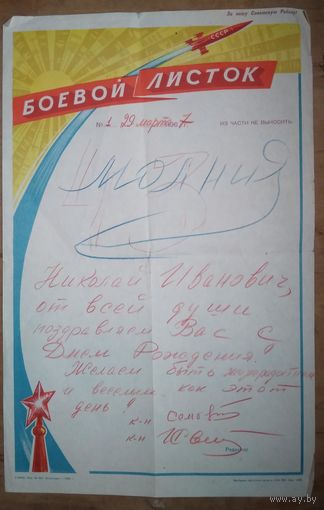 За нашу Советскую Родину!
СССР
БОЕВОЙ ЛИСТОК
№ 1 29 марта 7 ИЗ ЧАСТИ НЕ ВЫНОСИТЬ
МОЛНИЯ
Николай Иванович,
от всей души
поздравляем Вас с
Днем Рождения!
Желаем быть
и веселым как этот
день!
к-н
к-н
Редактор
www.ay.by